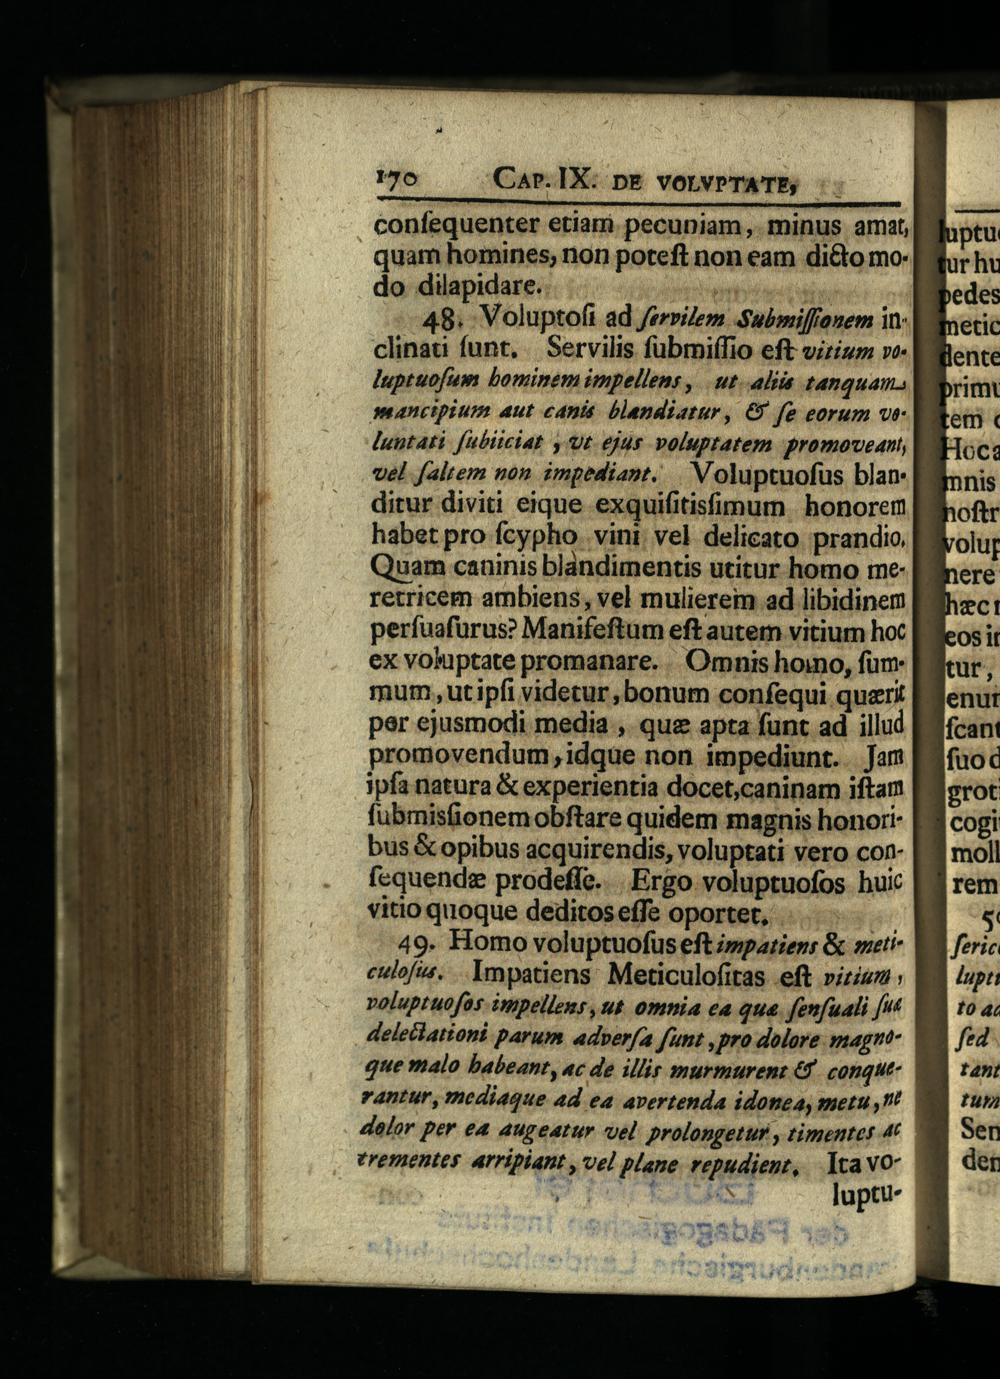 170 CAP. IX. DE VOLVPTATE,
conſequenter etiam pecuniam, minus amat,
quam homines, non poteſt non eam dicto mo-
do dilapidare.
48. Voluptoſi ad ſervilem Submiſſionem in-
clinati ſunt. Servilis ſubmiſſio eſt vitium vo-
luptuoſum hominem impellens, ut aliis tanquam
mancipium aut canis blandiatur, & ſe eorum vo-
luntati ſubiiciat, vt ejus voluptatem promoveant,
vel ſaltem non impediant. Voluptuoſus blan-
ditur diviti eique exquiſitisſimum honorem
habet pro ſcypho vini vel delicato prandio.
Quam caninis blandimentis utitur homo me-
retricem ambiens, vel mulierem ad libidinem
perſuaſurus? Manifeſtum eſt autem vitium hoc
ex voluptate promanare. Omnis homo, ſum-
mum, ut ipſi videtur, bonum conſequi quærit
per ejusmodi media, quæ apta ſunt ad illud
promovendum, idque non impediunt. Jam
ipſa natura & experientia docet, caninam iſtam
ſubmisſionem obſtare quidem magnis honori-
bus & opibus acquirendis, voluptati vero con-
ſequendæ prodeſſe. Ergo voluptuoſos huic
vitio quoque deditos eſſe oportet.
49. Homo voluptuoſus eſt impatiens & meti-
culoſus. Impatiens Meticuloſitas eſt vitium,
voluptuoſos impellens, ut omnia ea quæ ſenſuali ſuæ
delectationi parum adverſa ſunt, pro dolore magno-
que malo habeant, ac de illis murmurent & conque-
rantur, mediaque ad ea avertenda idonea, metu, ne
dolor per ea augeatur vel prolongetur, timentes ac
trementes arripiant, vel plane repudient. Ita vo-
luptu-